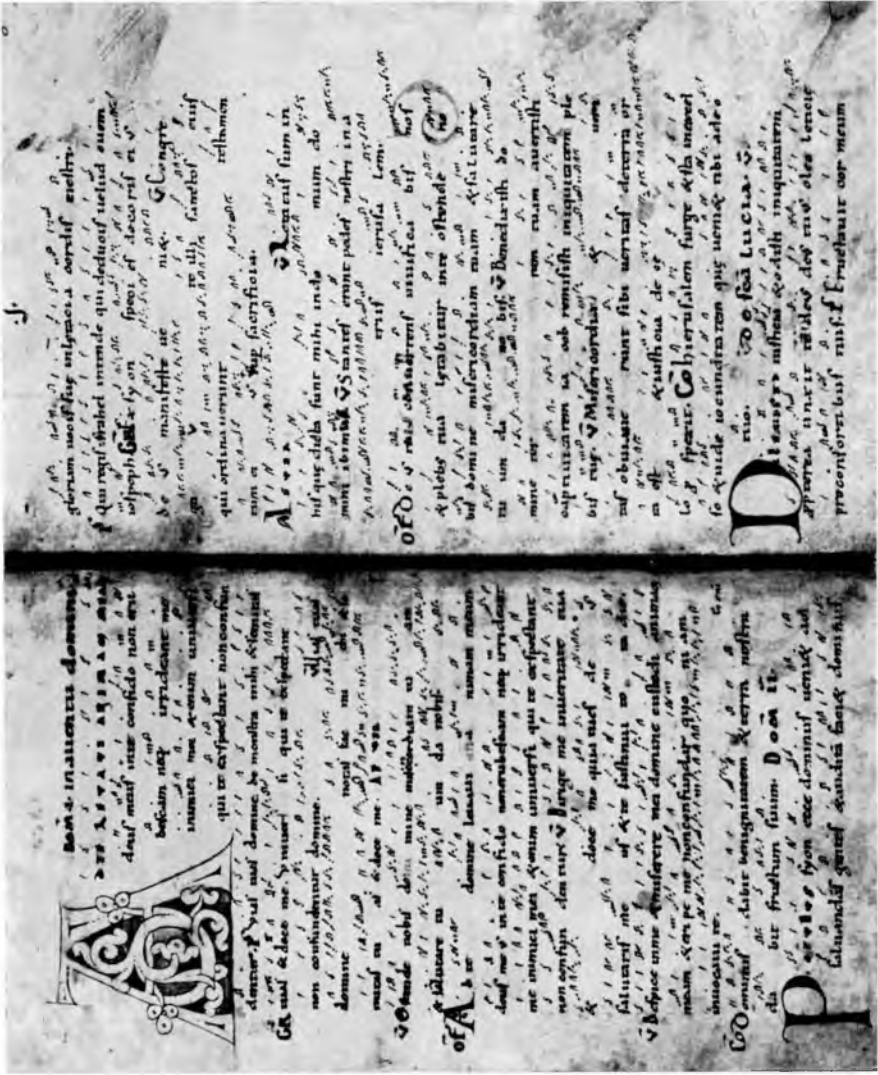 inadventu domini
AD TE LEVAVI ANIMAM MEAM
deus meus inte confido non eru
bescam neq; irrideant me
inimici mei &enim universi
qui te exspectant nonconfun
dentur. Vias tuas domine de monstra mihi &semitas
GR tuas &doce me. Universi qui te exspectant
non confundentur domine. Vias tuas
domine notas fac mi chi & se
mitas tu as &doce me.
Ostende nobis domine misericordiam tu am
&salutare tu um da nobis.
OF Ad te domine levavi animam meam
deus meus inte confido nonerubescam neq; irrideant
me inimici mei &enim universi qui te exspectant
non confun dentur Dirige me inveritate tua
& doce me quia tu es de us
salutaris me us &te sustinui to ta die.
Respice inme &miserere mei domine custodi animam
meam &eripe me nonconfundar quo ni am
invocavi te.
CO Dominus dabit benignitatem &terra nostra
da bit fructum suum. Dom ii
Populus syon ecce dominus veni& ad
salvandas gentes &auditam faci& dominus
gloriam vocis sue inleticia cordis vestri.
Qui regis israhel intende qui deducis velud ovem
ioseph GR Ex syon speci es decoris ei us
de us manifeste ve ni&. Congre
ga te illi sanctos eius
qui ordinaverunt testamen
tum e sup sacrificia.
Letatus sum in
his que dicta sunt mihi indo mum do
mini ibimus Stantes erant pedes nostri ina
triis ierusa lem.
OF Deus tu convertens vivifica bis nos
&plebs tua letabitur inte ostende no
bis domine misericordiam tuam &salutare
tu um da no bis. Benedixisti do
mine ter ram tuam avertisti
captivitatem ia cob remisisti iniquitatem ple
bis tue. Misericordia & veri
tas obviave runt sibi veritas deterra or
ta est &iusticia de ce
lo prospexit. CO hierusalem surge &sta inexcel
so &vide iocunditatem que veni& tibi adeo
tuo. De sca Lucia
Dilexisti iusticiam &odisti iniquitatem
propterea unxit te deus deus tuus oleo leticie
preconsortibus tuis. Eructavit cor meum